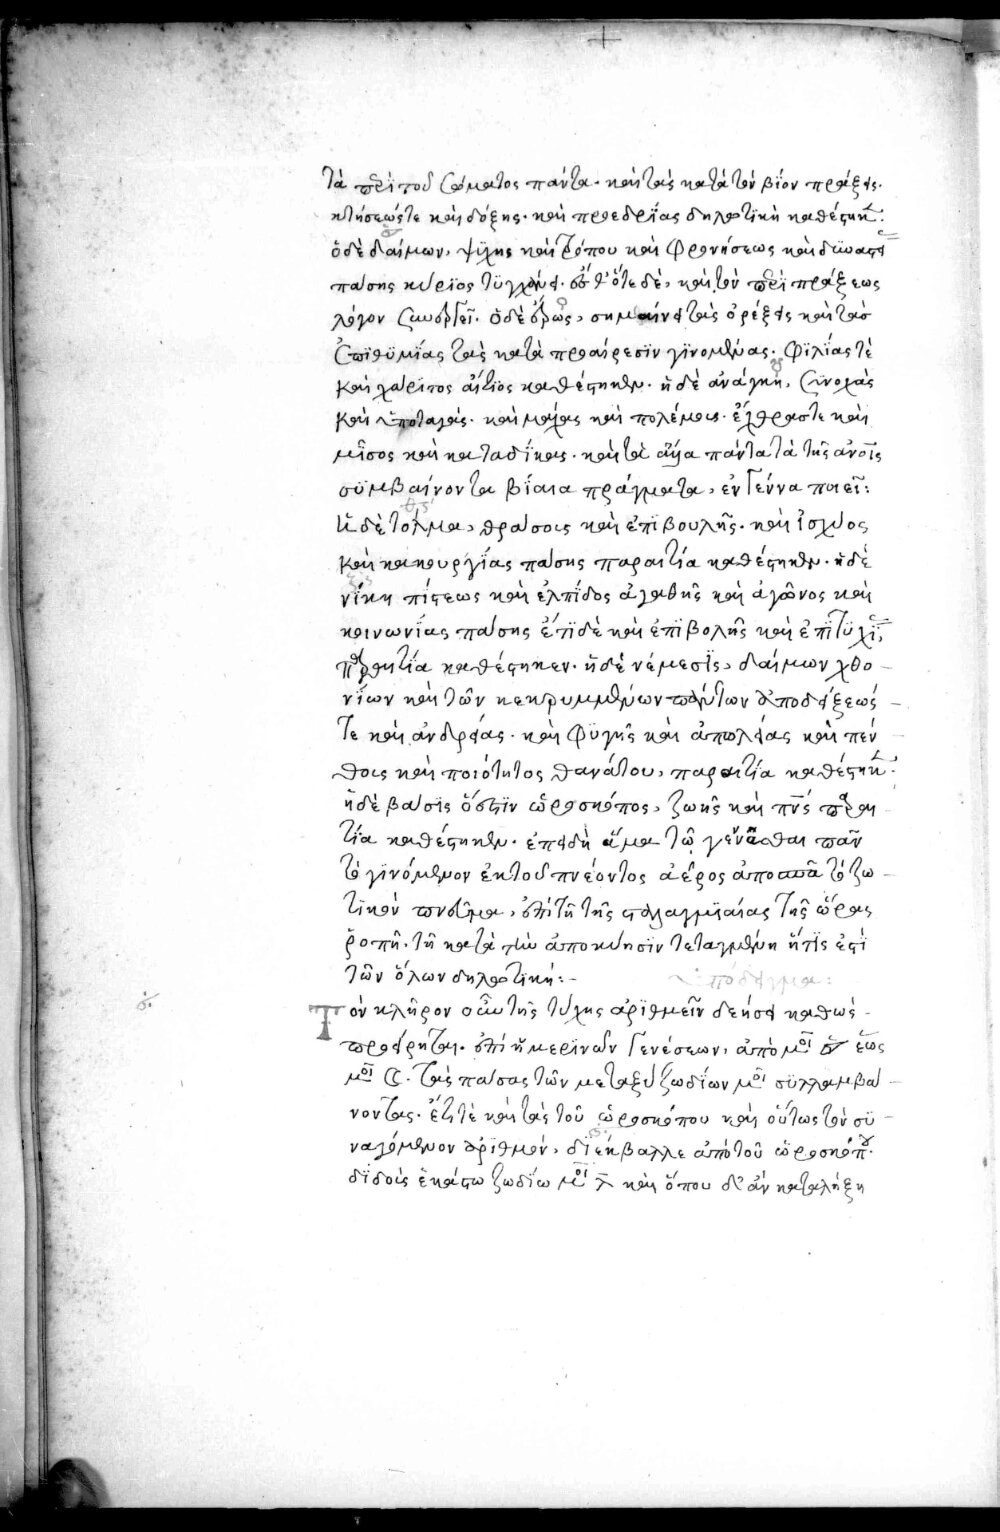 τὰ περὶ τοῦ σώματος πάντα· καὶ τὰς κατὰ τὸν βίον πράξεις·
κτήσεώς τε καὶ δόξης· καὶ προεδρίας δηλωτικὴ καθέστηκεν:
ὁ δὲ δαίμων, ψϋχῆς καὶ τρόπου καὶ φρονήσεως καὶ δϋναστεί
πάσης κύρϊος τϋγχάνει· ἔσθ' ὅτε δὲ, καὶ τὸν περὶ πράξεως
λόγον συνεργεῖ. ὁ δὲ ἔρως, σημαίνει τὰς ὀρέξεις καὶ τὰσ
ἐπϊθϋμΐας τὰς κατὰ προαίρεσϊν γϊνομένας· φϊλΐας τὲ
καὶ χάρϊτος αἴτϊος καθέστηκεν· ἡ δὲ ἀνάγκη, σϋνοχὰς
καὶ ὑποταγάς· καὶ μάχας καὶ πολέμους· ἔχθρας τε καὶ
μῖσος καὶ καταδΐκας· καὶ τὰ ἄλλα πάντα τὰ τοῖς ἀνοις
σϋμβαίνοντα βίαια πράγματα, ἐν γέννα ποιεῖ:
ἡ δὲ τόλμα, θράσους καὶ ἐπϊβουλῆς· καὶ ἰσχύος
καὶ κακουργΐας πάσης παραιτία καθέστηκεν· ἡ δὲ
νίκη πίστεως καὶ ἐλπΐδος ἀγαθῆς καὶ ἀγῶνος καὶ
κοινωνΐας πάσης ἔτϊ δὲ καὶ ἐπϊβολῆς καὶ ἐπϊτϋχΐ
παραιτία καθέστηκεν· ἡ δὲ νέμεσϊς, δαίμων χθο-
νΐων καὶ τῶν κεκρυμμένων πάντων ἀποδείξεώς
τε καὶ ἀνδρείας· καὶ φϋγῆς καὶ ἀπωλείας καὶ πέν
θους καὶ ποιότητος θανάτου, παραιτία καθέστηκεν:
ἡ δὲ βάσϊς ὅστϊν ὡροσκόπος, ζωῆς καὶ πνς παραι-
τία καθέστηκεν· ἐπειδὴ ἅμα τῷ γενᾶσθαι πᾶν
τὸ γϊνόμενον ἐκ τοῦ πνέοντος ἀέρος ἀποσπᾶ τὸ ζω-
τϊκὸν πνεῦμα, ἐπὶ τῆ τῆς σταγμϊαίας τῆς ὥρας
ῥοπῆ· τῆ κατὰ τὴν ἀποκύησϊν τεταγμένη ἥτϊς ἐστὶ
τῶν ὅλων δηλωτϊκή:- ὑπόδειγμα:
Τὸν κλῆρον οὖν τῆς τύχης ἀρϊθμεῖν δεήσει καθὼς-
προείρηται· ἐπὶ ἡμερϊνῶν γενέσεων, ἀπὸ μοι ☉ ἕως
μοι ☾. τὰς πάσας τῶν μεταξὺ ζωδΐων μοι σϋλλαμβά-
νοντας· ἔτϊ τὲ καὶ τὰς τοῦ ὡροσκόπου καὶ οὕτως τὸν σϋ-
ναγόμενον ἀρϊθμόν, διέκβαλλε ἀπὸ τοῦ ὡροσκόπου·
δϊδοὺς ἑκάστω ζωδΐω μοι λ καὶ ὅπου δ' ἂν καταλήξη